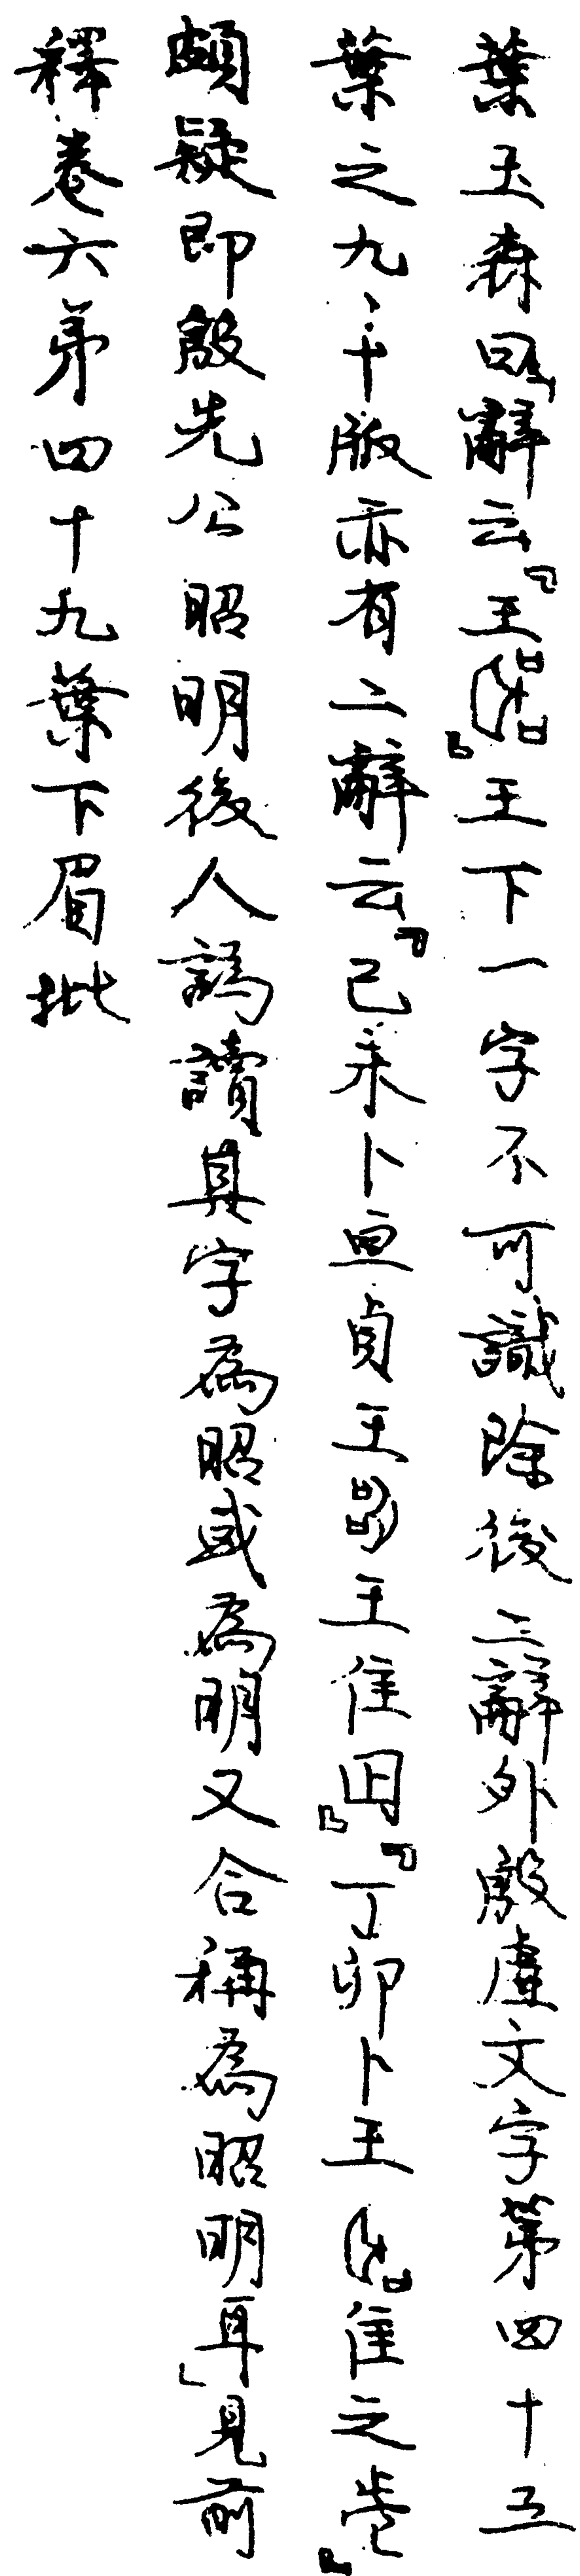 葉玉森曰「辭云『王』王下一字不可識除後二辭外殷虛文字第四十五
葉之九、十版亦有二辭云『己未卜亘貞王王隹』『丁卯卜王隹之』
頗疑即殷先公昭明後人譌讀其字為昭或為明又合稱為昭明耳」見前
釋卷六第四十九葉下眉批